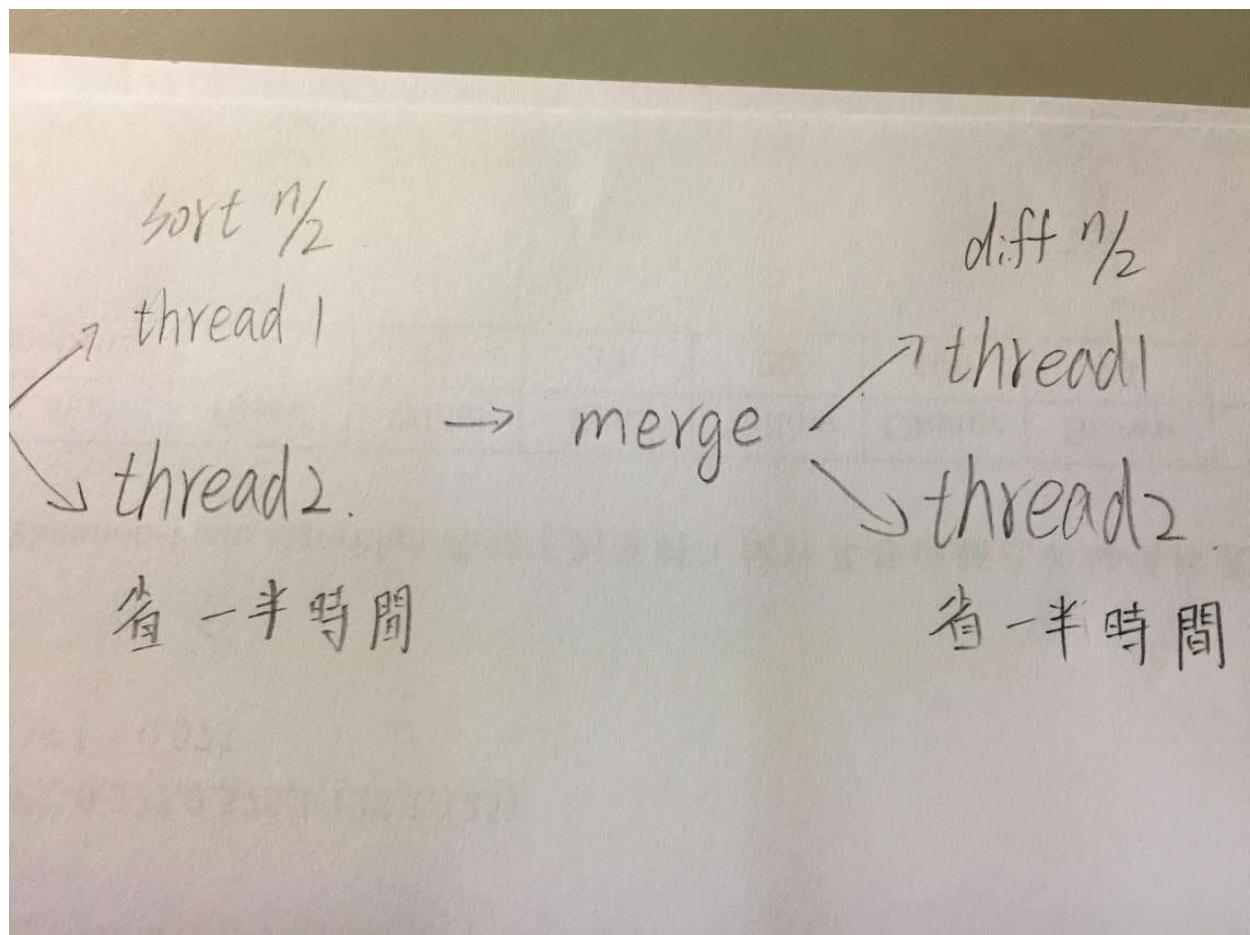 sort n/2
thread 1
thread2.
省一半時間
→ merge
diff n/2
thread1
thread2.
省一半時間